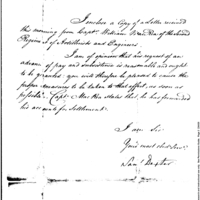 I inclose a Copy of a Letter received
this morning from Capt. William MacRea of the second
Regiment of Artillerists and Engineers
I am of opinion that his request of an
advance of pay and subsistence is reasonable and ought
to be granted; you will therefore be pleased to cause the
proper measures to be taken to that effect as soon as
possible. Capt. MacRea states that he has forwarded
his accounts for Settlement.
I am Sir
Your most obed. Serv.
Sam. Dexter